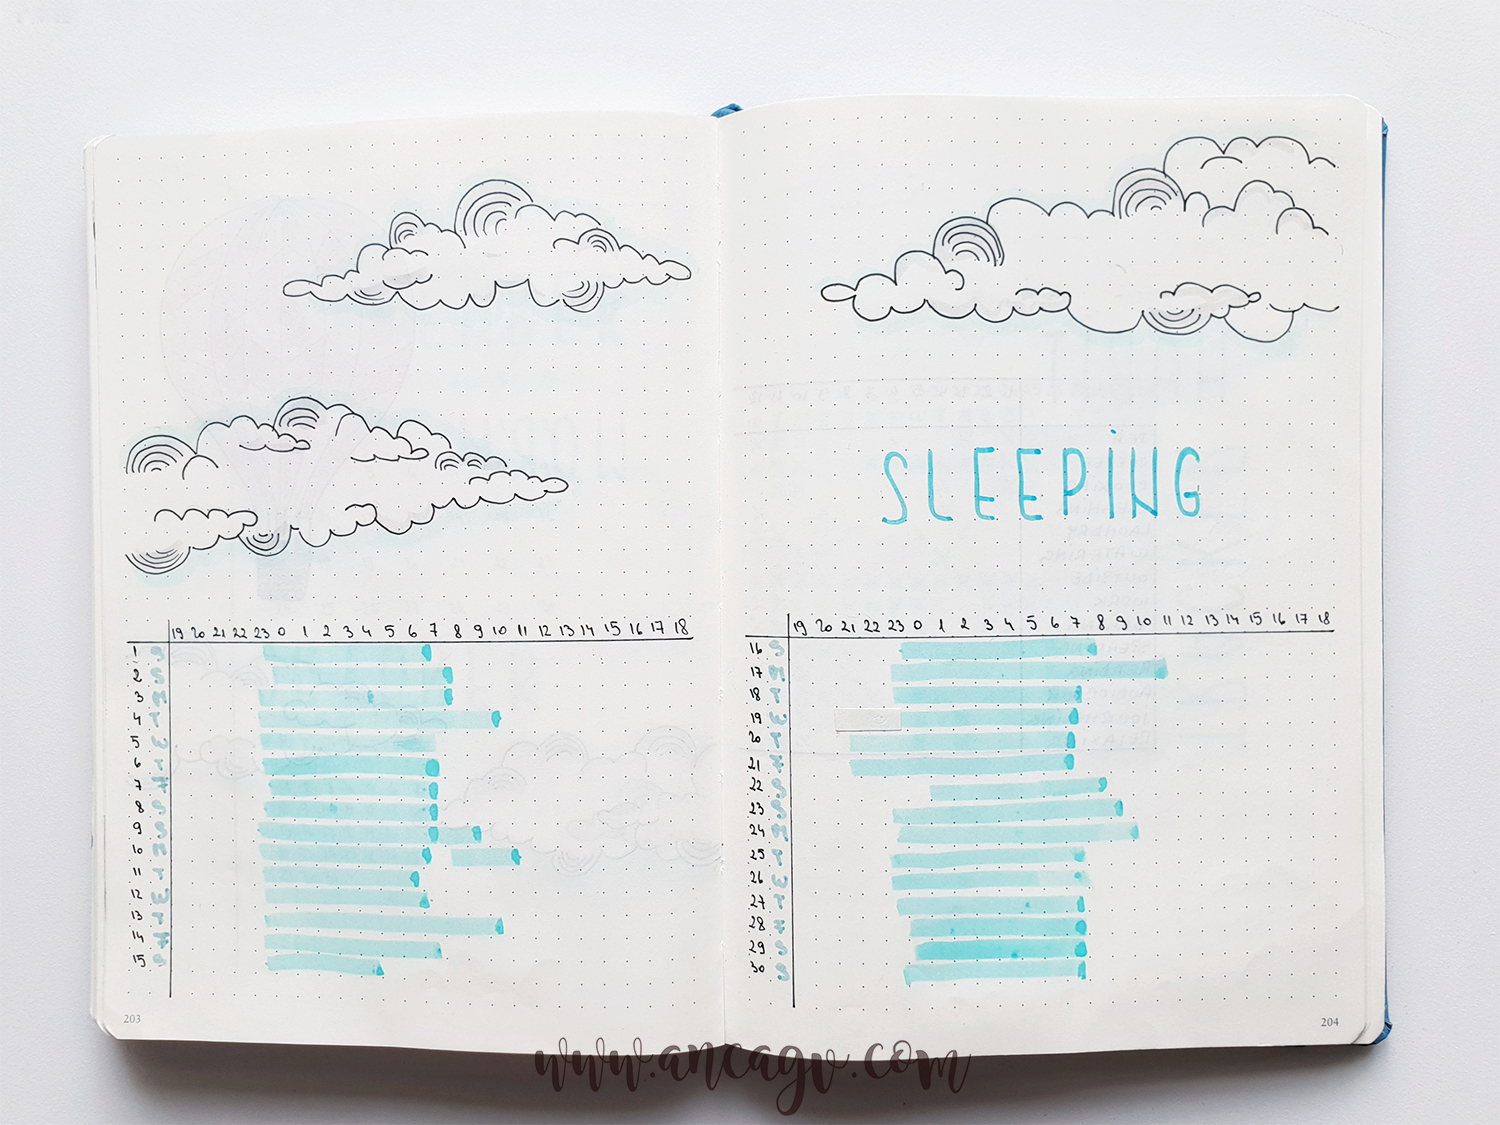 19 20 21 22 23 0 1 2 3 4 5 6 7 8 9 10 11 12 13 14 15 16 17 18
1 S
2 S
3 M
4 T
5 W
6 T
7 F
8 S
9 S
10 M
11 T
12 W
13 T
14 F
15 S
203
SLEEPING
19 20 21 22 23 0 1 2 3 4 5 6 7 8 9 10 11 12 13 14 15 16 17 18
16 S
17 M
18 T
19 W
20 T
21 F
22 S
23 S
24 M
25 T
26 W
27 T
28 F
29 S
30 S
204
www.ancagv.com